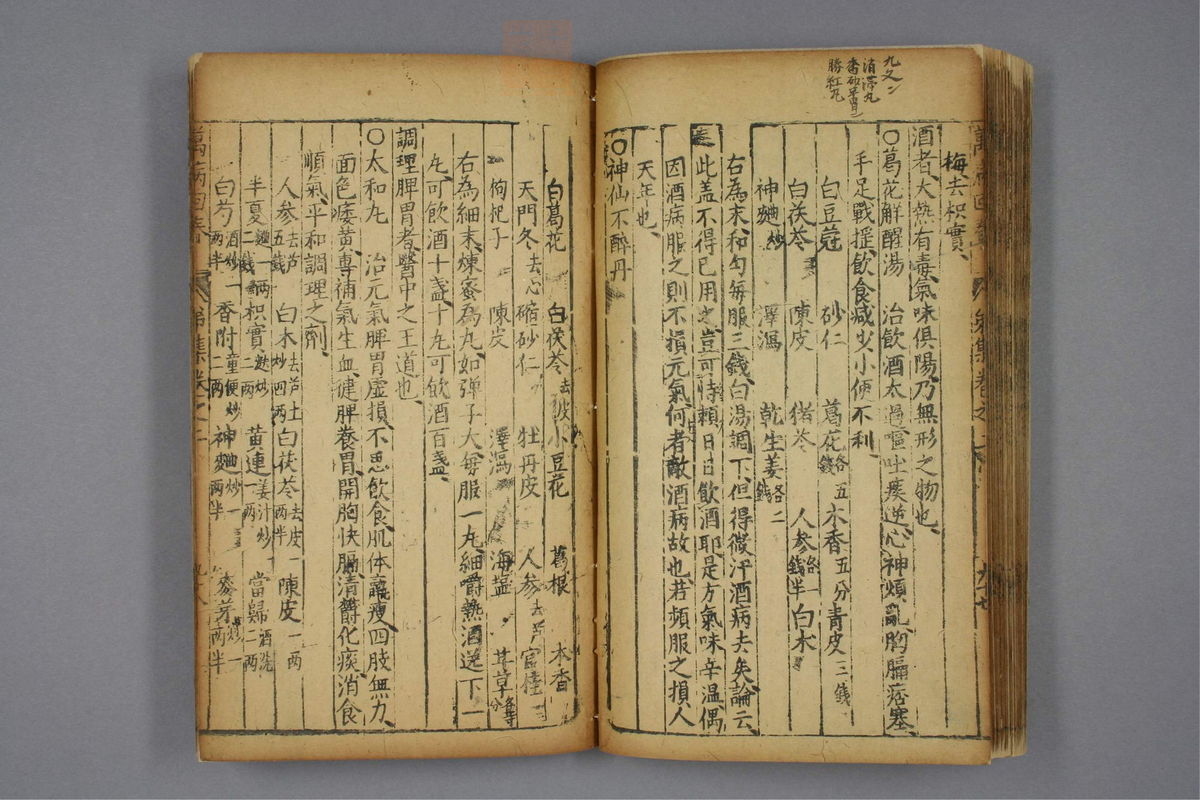 九又
消滯丸
香砂平胃
勝紅丸
梅去枳實
酒者大熱有毒氣味俱陽乃無形之物也
○葛花解酲湯 治飲酒太過嘔吐痰逆心神煩亂胸膈痞塞
手足戰搖飲食减少小便不利
白豆蔻 砂仁 葛花各五錢 木香五分 青皮三錢
白茯苓 陳皮 猪苓 人參各一錢半 白朮
神麯炒 澤瀉 乾生姜各二錢
右為末和勻每服三錢白湯調下但得微汗酒病去矣論云
此盖不得已用之豈可恃賴日日飲酒耶是方氣味辛温偶
因酒病服之則不損元氣何者敵酒病故也若頻服之損人
天年也
○神仙不醉丹
白葛花 白茯苓去皮 小豆花 葛根 木香
天門冬去心 縮砂仁 牡丹皮 人參去芦 官桂
枸杞子 陳皮 澤瀉 海塩 甘草各等分
右為細末煉蜜為丸如彈子大每服一丸細嚼熱酒送下一
丸可飲酒十盞十丸可飲酒百盞
調理脾胃者醫中之王道也
○太和丸 治元氣脾胃虛損不思飲食肌体羸瘦四肢無力
面色痿黃專補氣生血健脾養胃開胸快膈清鬱化痰消食
順氣平和調理之劑
人參去芦五錢 白朮去芦土炒四兩 白茯苓去皮兩半 陳皮一兩
半夏麵炒二錢 枳實麩炒二兩 黃連姜汁炒一兩 當歸酒洗二兩
白芍酒炒一兩半 香附童便炒二兩 神麯炒一兩半 麥芽炒一兩半
萬病回春